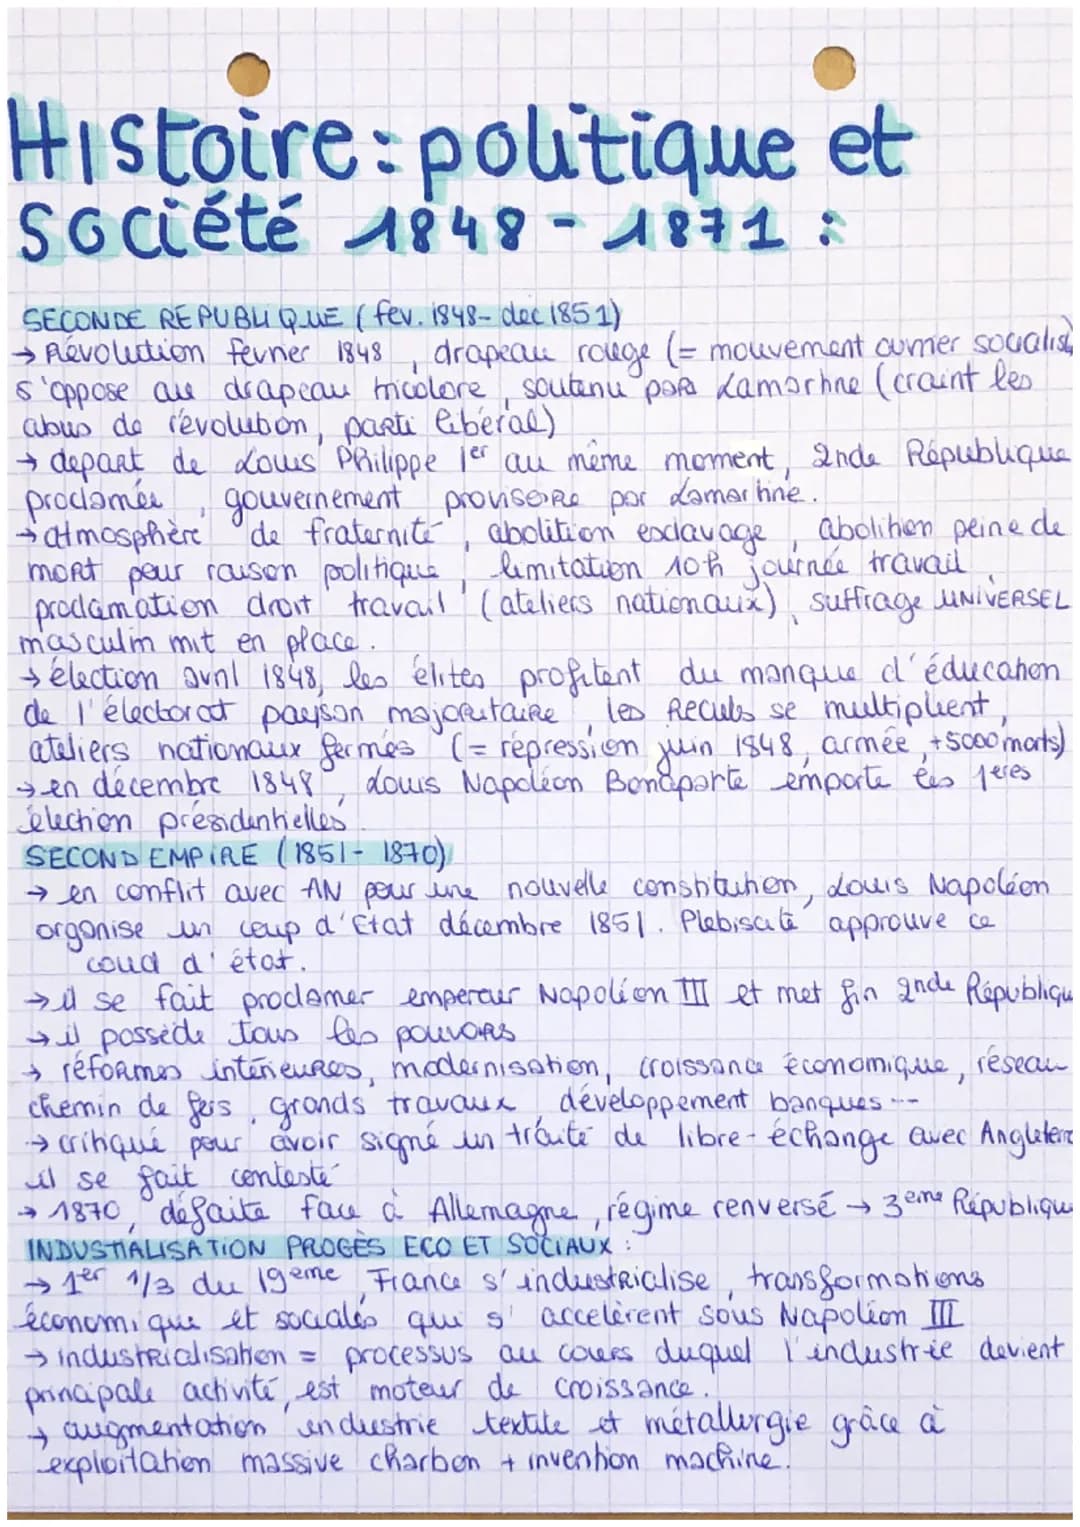 Histoire: politique et
Société 1848 - 1871 :
SECONDE REPUBLIQUE (fev. 1848- dec 1851)
→ Révolution fevrier 1848, drapeau rouge (= mouvement ouvrier socialist
s'oppose au drapeau tricolore, soutenu par Lamartine (craint les
abus de révolution, parti libéral)
→ depart de Louis Philippe 1er au même moment, 2nde République
proclamée, gouvernement provisoire par Lamartine.
→ atmosphère de fraternité, abolition esclavage, abolition peine de
mort pour raison politique, limitation 10h journée travail
proclamation droit travail (ateliers nationaux), suffrage UNIVERSEL
masculin mit en place.
→ élection avril 1848, les élites profitent du manque d'éducation
de l'électorat paysan majoritaire, les Reculs se multiplient,
ateliers nationaux fermés (= répression juin 1848, armée, +5000 morts)
→ en décembre 1848, Louis Napoléon Bonaparte emporte les 1eres
élection présidentielles.
SECOND EMPIRE (1851- 1870)
→ en conflit avec AN pour une nouvelle constitution, Louis Napoléon
organise un coup d'Etat décembre 1851. Plebiscité approuve ce
coud d'état.
→ il se fait proclamer empereur Napoléon III et met fin 2nde Républiqu
→ il possède tous les pouvoirs
→ réformes intérieures, modernisation, croissance économique, réseau
chemin de fers, grands travaux, développement banques ...
→ critiqué pour avoir signé un traité de libre-échange avec Angleterre
il se fait contesté
→ 1870, défaite face à Allemagne, régime renversé → 3eme République
INDUSTIALISATION PROGÈS ECO ET SOCIAUX :
→ 1er 1/3 du 19eme, France s'industrialise, transformations
économique et sociales qui s'accelèrent sous Napoléon III
→ industrialisation = processus au cours duquel l'industrie devient
principale activité, est moteur de croissance.
→ augmentation industrie textile et métallurgie grâce à
exploitation massive charbon + invention machine.